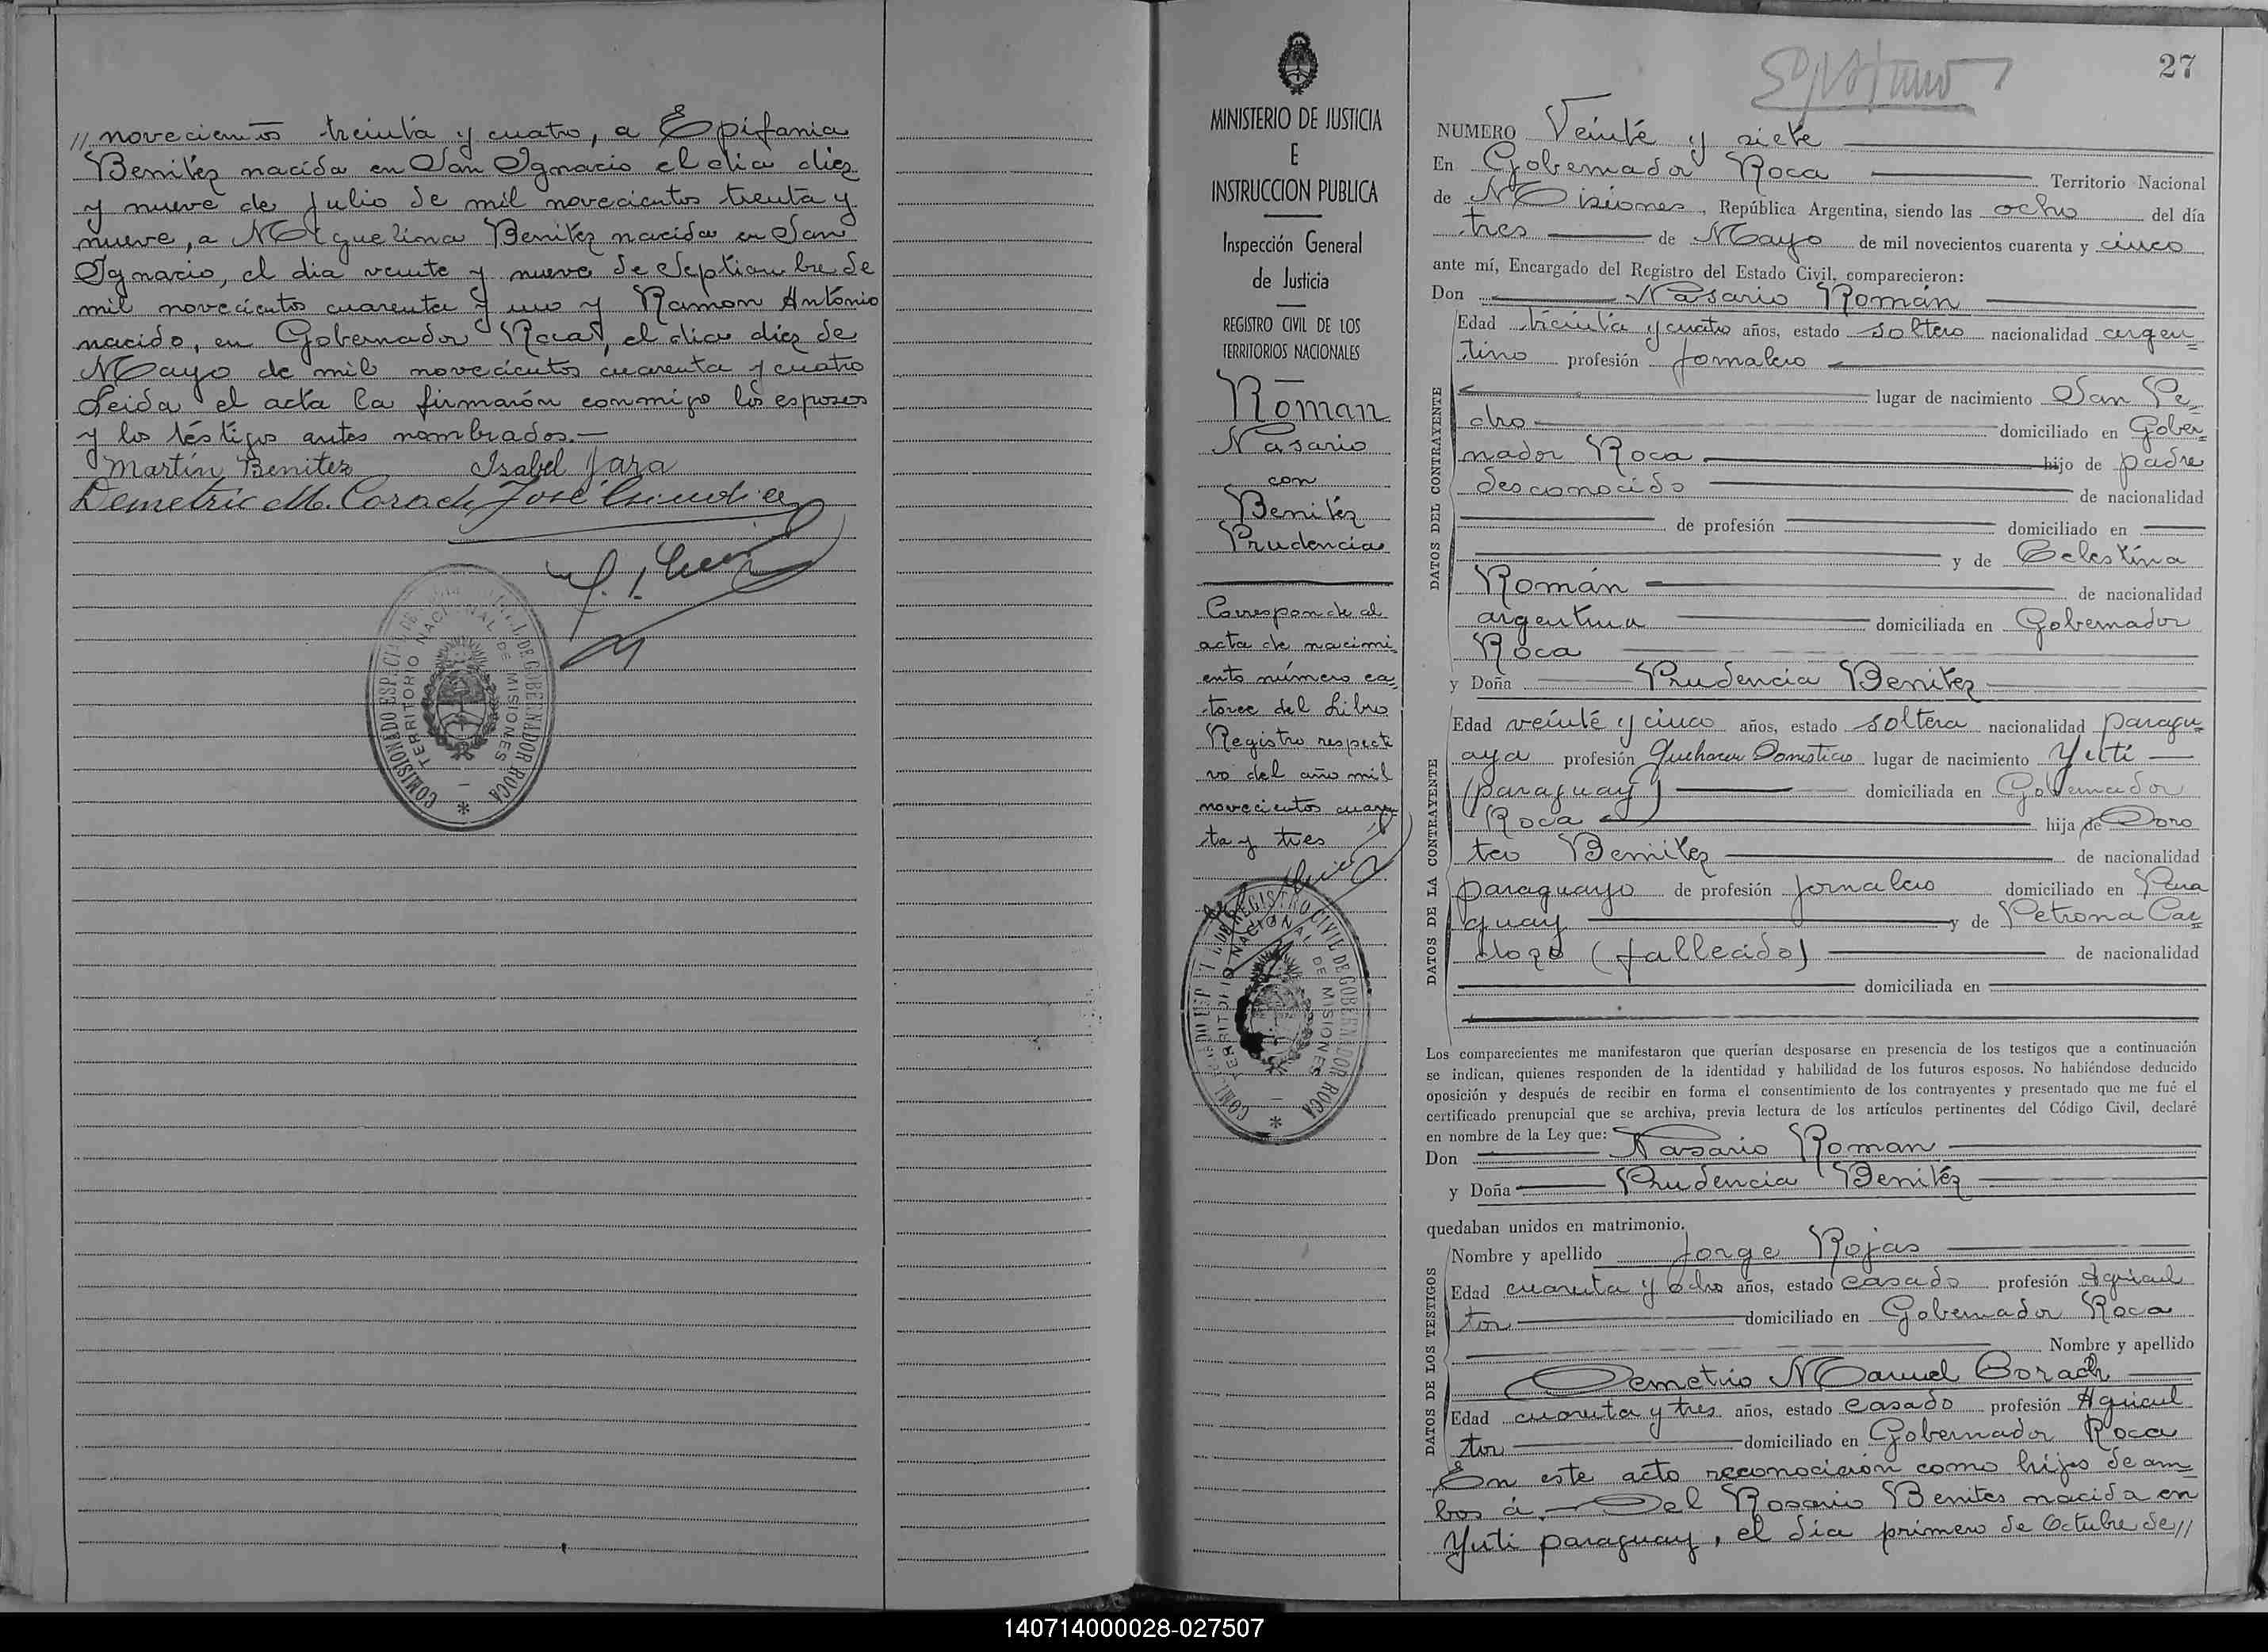 // novecientos treinta y cuatro, a Epifania
Benitez nacida en San Ignacio el dia diez
y nueve de Julio de mil novecientos treinta y
nueve, a Miguelina Benitez nacida en San
Ignacio, el dia veinte y nueve de Septiembre de
mil novecientos cuarenta y uno y Ramon Antonio
nacido, en Gobernador Roca, el dia diez de
Mayo de mil novecientos cuarenta y cuatro
Leida el acta la firmarón conmigo los esposos
y los testigos antes nombrados.—
Martín Benitez Isabel Jara
Demetrio M. Corach José
COMISIONADO ESPECIAL DE GOBERNADOR ROCA
TERRITORIO NACIONAL DE MISIONES
MINISTERIO DE JUSTICIA
E
INSTRUCCION PUBLICA
Inspección General
de Justicia
REGISTRO CIVIL DE LOS
TERRITORIOS NACIONALES
Roman
Nasario
con
Benitéz
Prudencia
Corresponde al
acta de nacimi-
ento número ca-
torce del Libro
Registro respecti
vo del año mil
novecientos cuaren
ta y tres
REGISTRO CIVIL DE GOBERNADOR ROCA
TERRITORIO NACIONAL DE MISIONES
27
NUMERO Veinte y siete
En Gobernador Roca Territorio Nacional
de Misiones, República Argentina, siendo las ocho del día
tres de Mayo de mil novecientos cuarenta y cinco
ante mí, Encargado del Registro del Estado Civil, comparecieron:
Don Nasario Román
DATOS DEL CONTRAYENTE
Edad treinta y cuatro años, estado soltero nacionalidad argen-
tino profesión Jornalero
lugar de nacimiento San Pe-
dro domiciliado en Gober-
nador Roca hijo de padre
desconocido de nacionalidad
de profesión domiciliado en
y de Celestina
Román de nacionalidad
argentina domiciliada en Gobernador
Roca
y Doña Prudencia Benitez
DATOS DE LA CONTRAYENTE
Edad veinte y cinco años, estado soltera nacionalidad paragu-
aya profesión Quehacer Domesticos lugar de nacimiento Yuti
(paraguay) domiciliada en Gobernador
Roca hija de Doro
teo Benitez de nacionalidad
paraguayo de profesión Jornalero domiciliado en Para
guay y de Petrona Car-
dozo (fallecido) de nacionalidad
domiciliada en
Los comparecientes me manifestaron que querían desposarse en presencia de los testigos que a continuación
se indican, quienes responden de la identidad y habilidad de los futuros esposos. No habiéndose deducido
oposición y después de recibir en forma el consentimiento de los contrayentes y presentado que me fué el
certificado prenupcial que se archiva, previa lectura de los artículos pertinentes del Código Civil, declaré
en nombre de la Ley que:
Don Nasario Roman
y Doña Prudencia Benitéz
quedaban unidos en matrimonio.
DATOS DE LOS TESTIGOS
Nombre y apellido Jorge Rojas
Edad cuarenta y ocho años, estado casado profesión Agricul
tor domiciliado en Gobernador Roca
Nombre y apellido
Demetrio Manuel Corach
Edad cuarenta y tres años, estado casado profesión Agricul
tor domiciliado en Gobernador Roca
En este acto reconocierón como hijos de am-
bos á.— Del Rosario Benites nacida en
Yuti paraguay, el dia primero de Octubre de //
140714000028-027507